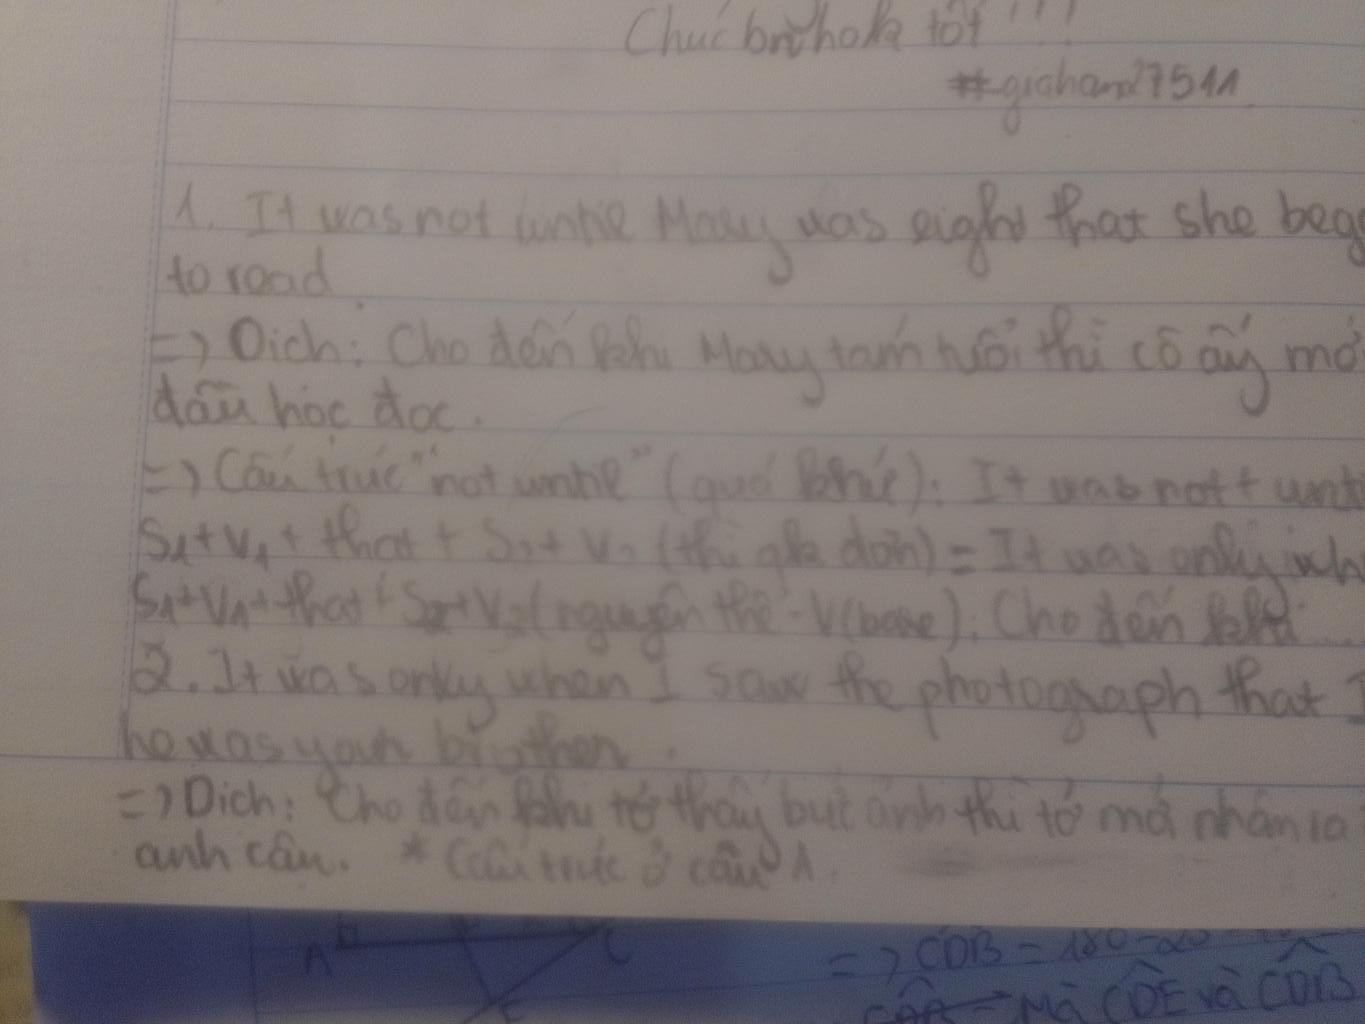 Chúc bn hok tốt !!!
#giahan27511
1. It was not until Mary was eight that she beg
to read
=> Dịch: Cho đến khi Mary tám tuổi thì cô ấy mớ
đầu học đọc.
=> Cấu trúc "not until" (quá khứ): It was not + unt
S1+V1 + that + S2+ V2 (thì qk đơn) = It was only wh
S1+V1+that+S2+V2(nguyên thể - V(base): Cho đến khi
2. It was only when I saw the photograph that I
he was your brother.
=> Dịch: Cho đến khi tớ thấy bức ảnh thì tớ mới nhận ra
anh cậu. * Cấu trúc ở câu 1.
A C
E
=> CDB = 180-
Mà CDE và CDB